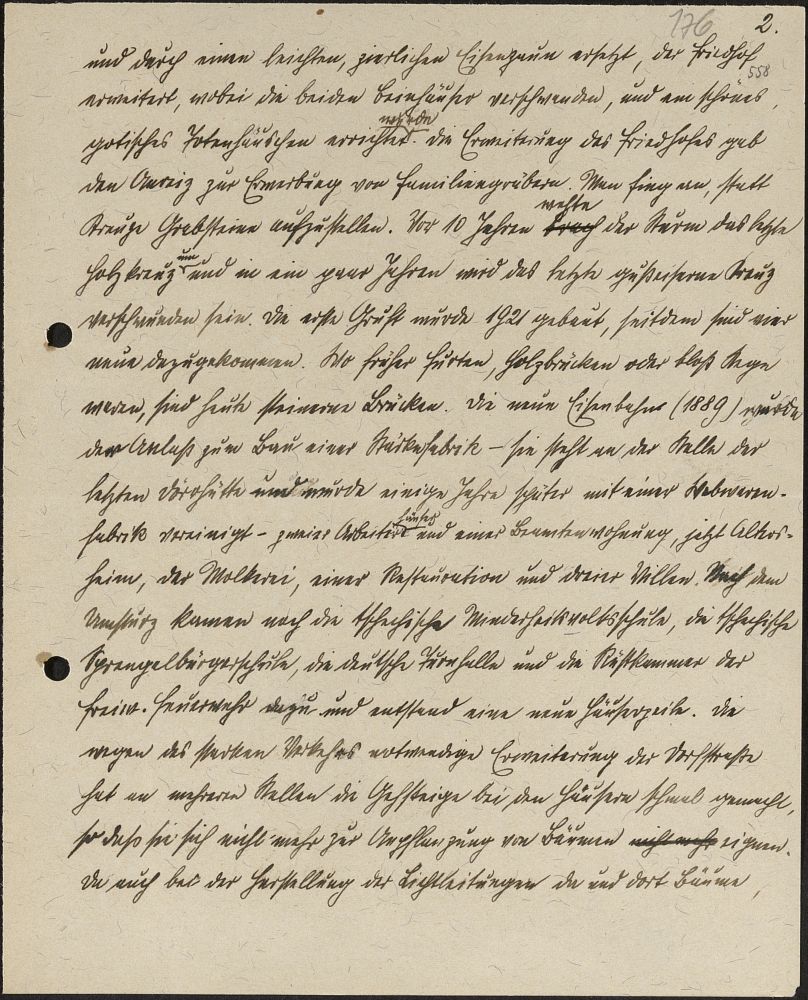 176 2.
558
und durch einen leichten, zierlichen Eisenzaun ersetzt, der Friedhof
erweitert, wobei die beiden Beinhäuser verschwanden, und ein schönes,
gotisches Totenhäuschen errichtet wurde. Die Erweiterung des Friedhofes gab
den Anreiz zur Erwerbung von Familiengräbern. Man fing an, statt
Kreuze Grabsteine aufzustellen. Vor 10 Jahren brach wehte der Sturm das letzte
Holzkreuz um und in ein paar Jahren wird das letzte gußeiserne Kreuz
verschwunden sein. Die erste Gruft wurde 1921 gebaut, seitdem sind vier
neue dazugekommen. Wo früher Furten, Holzbrücken oder bloß Stege
waren, sind heute steinerne Brücken. Die neue Eisenbahn (1889) wurde
der Anlaß zum Bau einer Stärkefabrik – sie steht an der Stelle der
letzten Dörrhütte und wurde einige Jahre später mit einer Webwaren-
fabrik vereinigt – zweier Arbeiterhäuser und einer Beamtenwohnung, jetzt Alters-
heim, der Molkerei, einer Restauration und dreier Villen. Nach dem
Umsturz kamen noch die tschechische Minderheitsvolksschule, die tschechische
Sprengelbürgerschule, die deutsche Turnhalle und die Rüstkammer der
freiw. Feuerwehr dazu und entstand eine neue Häuserzeile. Die
wegen des starken Verkehrs notwendige Erweiterung der Dorfstraße
hat an mehreren Stellen die Gehsteige bei den Häusern schmal gemacht,
so daß sie sich nicht mehr zur Anpflanzung von Bäumen nicht mehr eignen.
Da auch bei der Herstellung der Lichtleitungen da und dort Bäume,